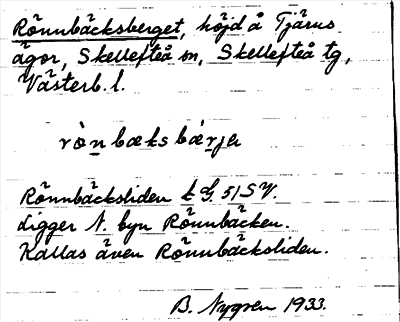 Rönnbäcksberget, höjd å Tjärns
ägor, Skellefteå sn, Skellefteå tg,
Västerb. l.
rònbæksbærja
Rönnbäcksliden k G. 51 SV.
Ligger N. byn Rönnbäcken.
Kallas även Rönnbäcksliden.
B. Nygren 1933.